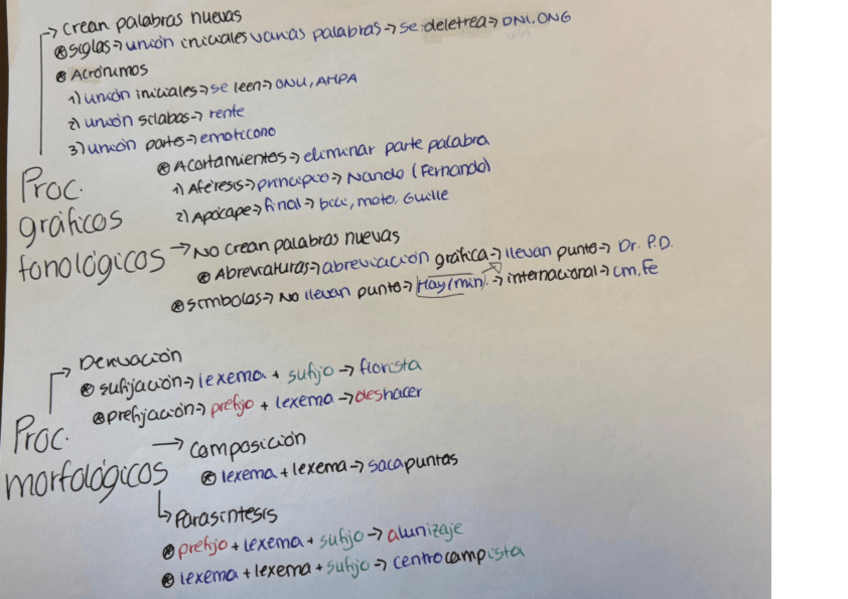 → Crean palabras nuevas
⊛ Siglas → unión iniciales varias palabras → se deletrea → DNI, ONG
⊛ Acrónimos
1) unión iniciales → se leen → ONU, AMPA
2) unión sílabas → rente
3) unión partes → emoticono
⊛ Acortamientos → eliminar parte palabra
1) Aféresis → principio → Nando (Fernando)
2) Apócape → final → bici, moto, Guille
Proc.
gráficos
fonológicos
→ No crean palabras nuevas
⊛ Abreviaturas → abreviación gráfica → llevan punto → Dr. P.D.
⊛ símbolos → No llevan punto → May/min. → internacional → cm, Fe
→ Derivación
⊛ sufijación → lexema + sufijo → florista
⊛ prefijación → prefijo + lexema → deshacer
Proc.
morfológicos
→ Composición
⊛ lexema + lexema → sacapuntas
↳ Parasíntesis
⊛ prefijo + lexema + sufijo → alunizaje
⊛ lexema + lexema + sufijo → centrocampista